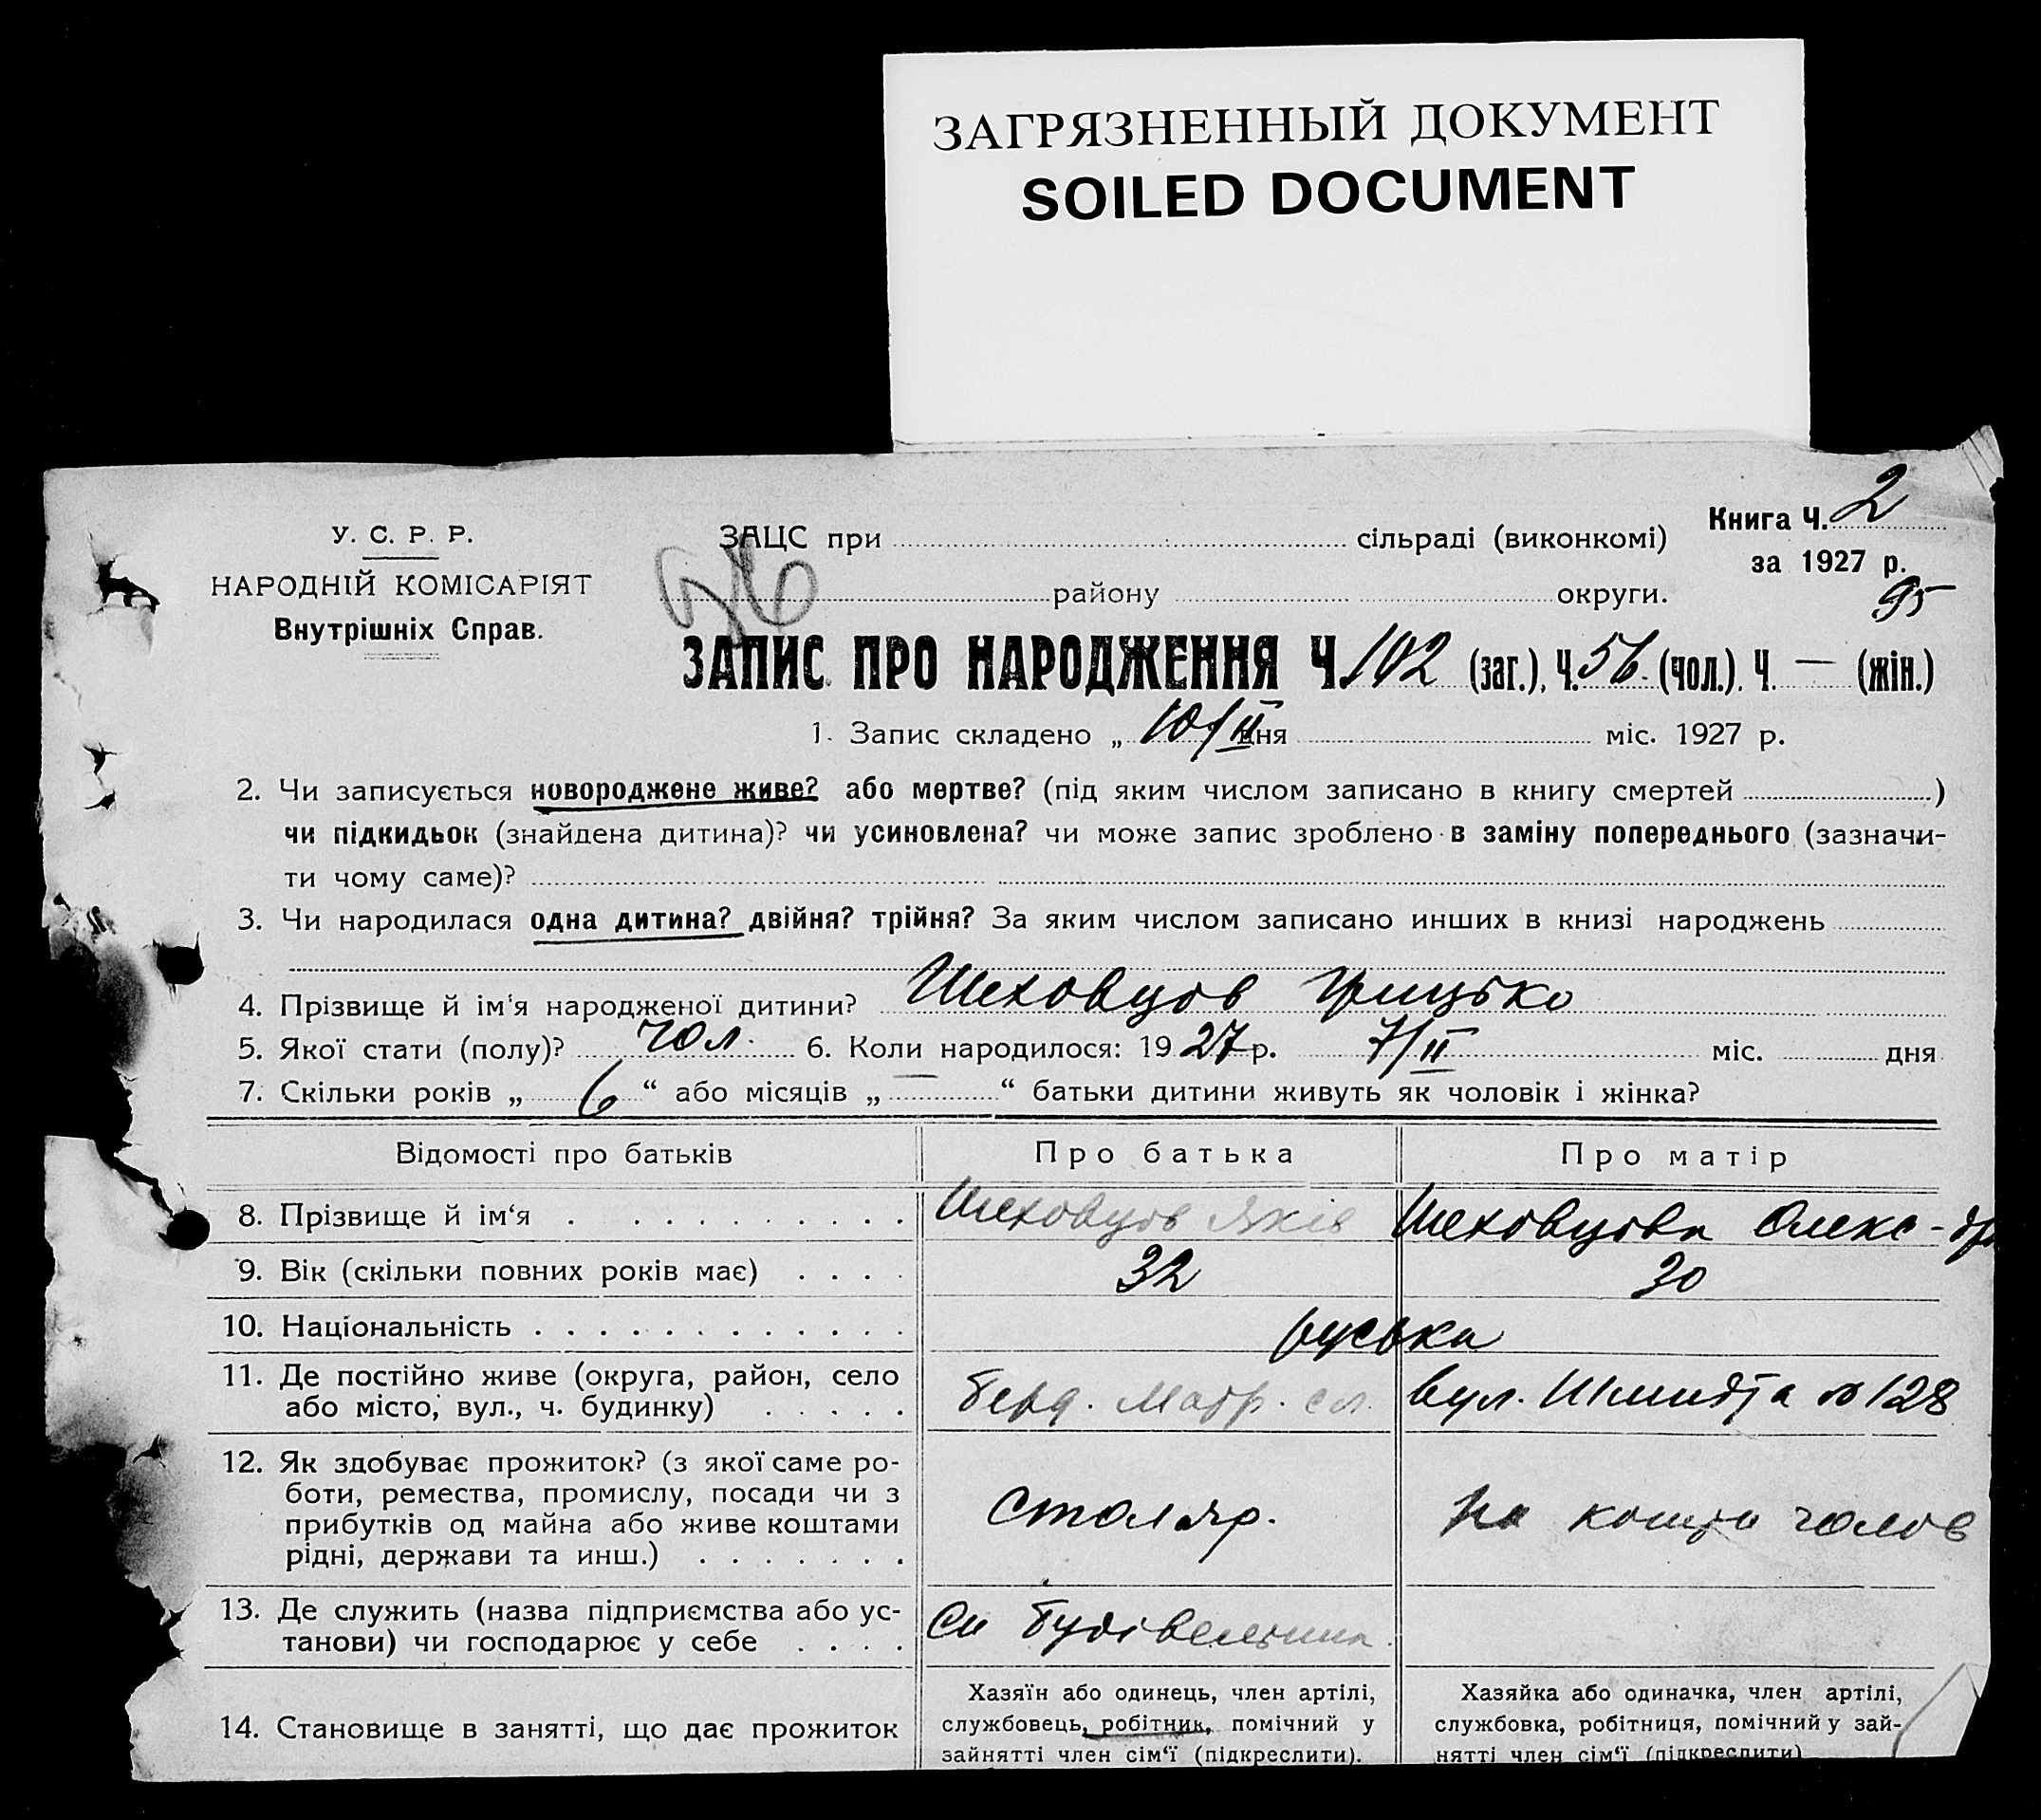 ЗАГРЯЗНЕННЫЙ ДОКУМЕНТ
SOILED DOCUMENT
Книга Ч. 2
за 1927 р.
95
У. С. Р. Р.
НАРОДНІЙ КОМІСАРІЯТ
Внутрішніх Справ.
ЗАЦС при сільраді (виконкомі)
району округи.
56
ЗАПИС ПРО НАРОДЖЕННЯ Ч. 102 (заг.), Ч. 56 (чол.). Ч. — (жін.)
1. Запис складено „ 10/II дня міс. 1927 р.
2. Чи записується новороджене живе? або мертве? (під яким числом записано в книгу смертей )
чи підкидьок (знайдена дитина)? чи усиновлена? чи може запис зроблено в заміну попереднього (зазначи-
ти чому саме)?
3. Чи народилася одна дитина? двійня? трійня? За яким числом записано инших в книзі народжень
4. Прізвище й ім'я народженої дитини? Шеховцов Грицько
5. Якої стати (полу)? чол. 6. Коли народилося: 1927 р. 7/II міс. дня
7. Скільки років „ 6 “ або місяців „ — “ батьки дитини живуть як чоловік і жінка?
Відомості про батьків Про батька Про матір
8. Прізвище й ім‘я Шеховцов Яків Шеховцова Олекс-дра
9. Вік (скільки повних років має) 32 30
10. Національність руська
11. Де постійно живе (округа, район, село
або місто, вул., ч. будинку) Берд. Матр. сл. вул. Шмидта № 128
12. Як здобуває прожиток? (з якої саме ро-
боти, ремества, промислу, посади чи з
прибутків од майна або живе коштами
рідні, держави та инш.) Столяр. На кошти чолов
13. Де служить (назва підприємства або ус-
танови) чи господарює у себе будівельника
14. Становище в занятті, що дає прожиток
Хазяїн або одинець, член артілі,
службовець, робітник, помічний у
зайнятті член сім‘ї (підкреслити).
Хазяйка або одиначка, член артілі,
службовка, робітниця, помічний у зай-
нятті член сім‘ї (підкреслити)